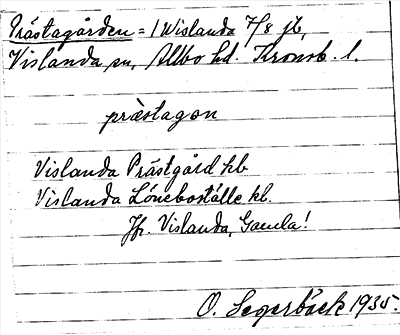 Prästagården = 1 Wislanda 7/8 jb,
Vislanda sn, Allbo hd. Kronob. l.
præstagon
Vislanda Prästgård hb
Vislanda Löneboställe kl.
Jfr. Vislanda, Gamla!
O. Segerbäck 1935.